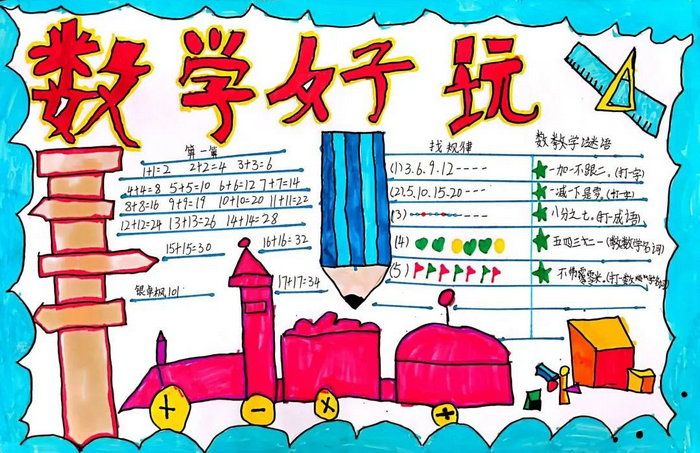 数学好玩
算一算
1+1=2 2+2=4 3+3=6
4+4=8 5+5=10 6+6=12 7+7=14
8+8=16 9+9=19 10+10=20 11+11=22
12+12=24 13+13=26 14+14=28
15+15=30 16+16=32
17+17=34
找规律
(1)3.6.9.12----
(2).5.10.15.20---
(3)
(4)
(5)
数数学谜语
一加一不跟二。(打一字)
一减一下是零。(打一字)
八分之七。(打一成语)
五四三二一(教数学名词)
+ - × +